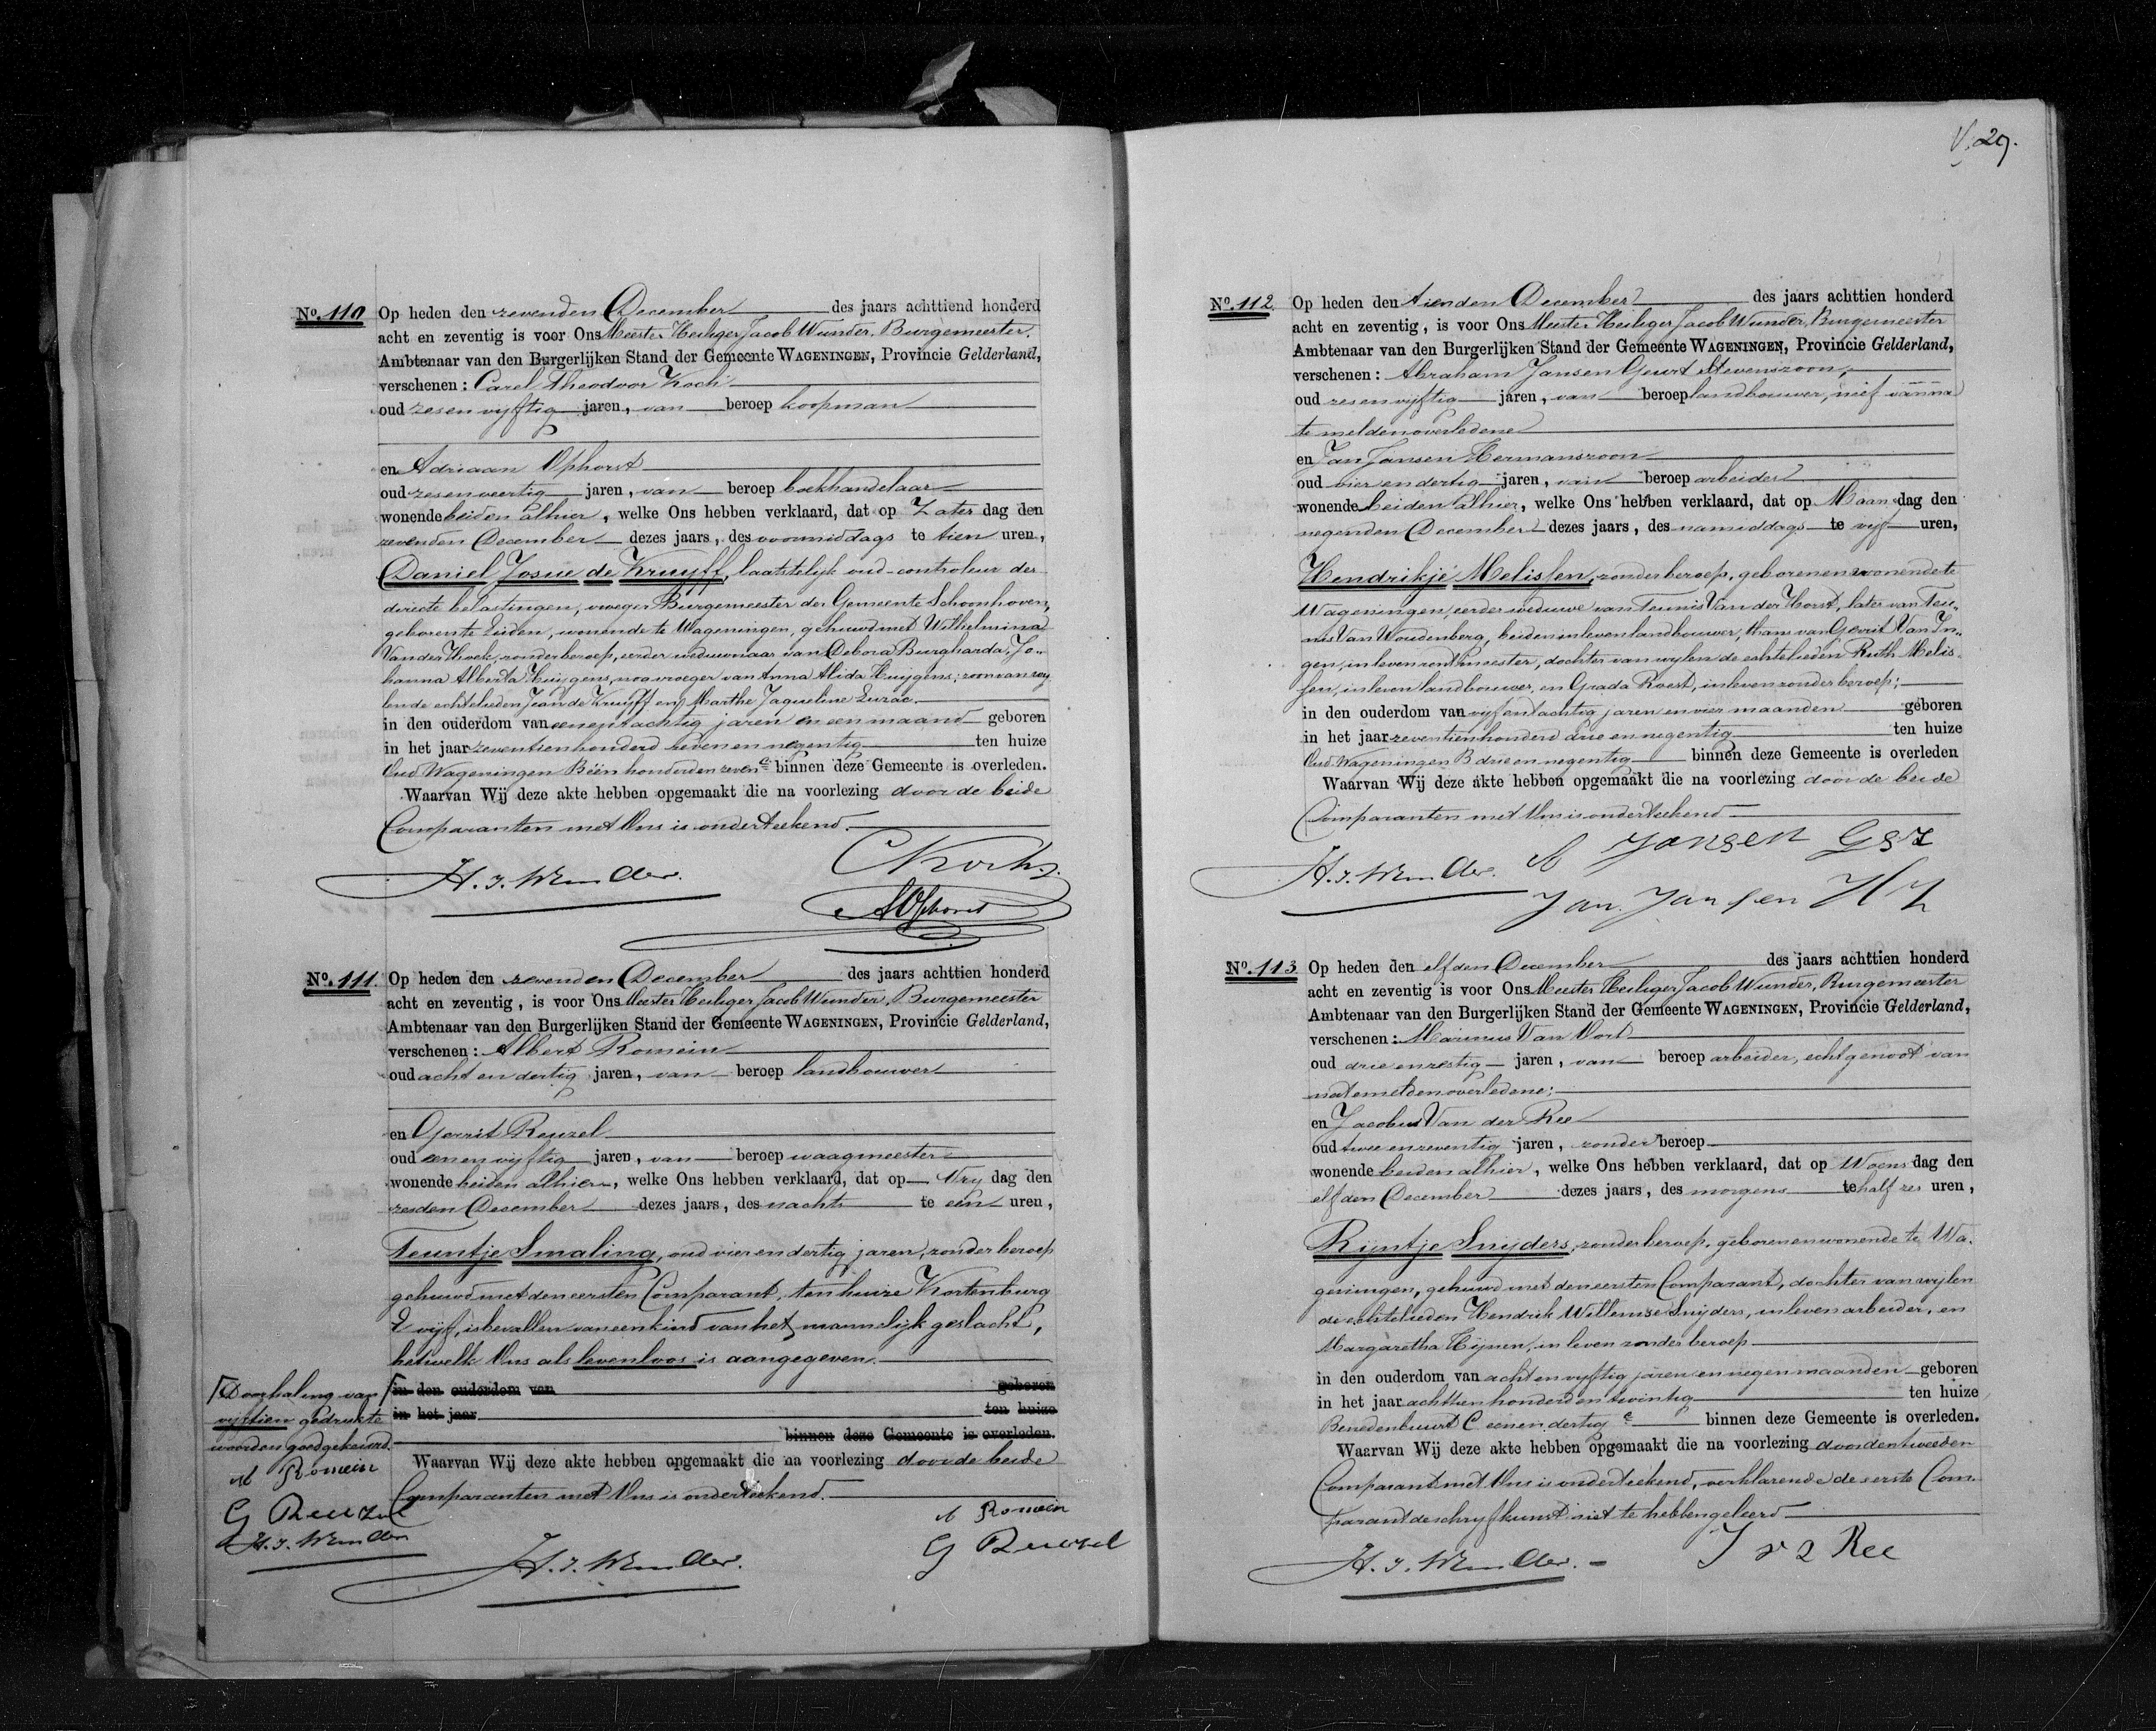 No. 110 Op heden den zevenden December des jaars achttiend honderd
acht en zeventig is voor Ons Meester Heiliger Jacob Wunder, Burgemeester.
Ambtenaar van den Burgerlijken Stand der Gemeente WAGENINGEN, Provincie Gelderland,
verschenen: Carel Theodoor Koch
oud zesenvijftig jaren, van beroep koopman
en Adriaan Ophorst
oud zesenveertig jaren, van beroep boekhandelaar
wonende beiden alhier, welke Ons hebben verklaard, dat op Zater dag den
zevenden December dezes jaars, des voormiddags te tien uren,
Daniel Josue de Kruyff, laatstelijk oud-controleur der
directe belastingen, vroeger Burgemeester der Gemeente Schoonhoven,
geboren te Leiden, wonende te Wageningen, gehuwd met Wilhelmina
Van der Hoek, zonder beroep, eerder weduwnaar van Debora Burgharda Jo-
hanna Alberta Huijgens, nog vroeger van Anna Alida Huijgens; zoon van wij
len de echtelieden Jean de Kruyff en Marthe Jaqueline Luzac.
in den ouderdom van eenentachtig jaren en een maand geboren
in het jaar zeventienhonderd zeven en negentig ten huize
Oud Wageningen B één honderd en zeven a binnen deze Gemeente is overleden.
Waarvan Wij deze akte hebben opgemaakt die na voorlezing door de beide
Comparanten met Ons is onderteekend.
H. J. Wunder. CKoch.
AOphorst
No. 111. Op heden den zevenden December des jaars achttien honderd
acht en zeventig, is voor Ons Meester Heiliger Jacob Wunder, Burgemeester
Ambtenaar van den Burgerlijken Stand der Gemeente WAGENINGEN, Provincie Gelderland,
verschenen: Albert Romein
oud acht en dertig jaren, van beroep landbouwer
en Gerrit Reuzel
oud eenenvijftig jaren, van beroep waagmeester
wonende beiden alhier, welke Ons hebben verklaard, dat op Vrij dag den
zesden December dezes jaars, des nachts te een uren,
Teuntje Smaling, oud vier en dertig jaren, zonder beroep
gehuwd met den eersten Comparant, ten huize Kortenburg
E vijf, is bevallen van een kind van het mannelijk geslacht,
hetwelk Ons als levenloos is aangegeven.
in den ouderdom van geboren
in het jaar ten huize
binnen deze Gemeente is overleden.
Waarvan Wij deze akte hebben opgemaakt die na voorlezing door de beide
Comparanten met Ons is onderteekend.
A Romein
G Reuzel
H. J. Wunder.
Doorhaling van
vijftien gedrukte
woorden goedgekeurd.
A Romein
G Reuzel
H. J. Wunder
29.
No. 112. Op heden den tienden December des jaars achttien honderd
acht en zeventig, is voor Ons Meester Heiliger Jacob Wunder, Burgemeester
Ambtenaar van den Burgerlijken Stand der Gemeente WAGENINGEN, Provincie Gelderland,
verschenen: Abraham Jansen Geurt Stevenszoon,
oud zesenvijftig jaren, van beroep landbouwer, neef van na
te melden overledene
en Jan Jansen Hermanszoon
oud vier en dertig jaren, van beroep arbeider
wonende beiden alhier, welke Ons hebben verklaard, dat op Maan dag den
negenden December dezes jaars, des namiddags te vijf uren,
Hendrikje Melissen, zonder beroep, geboren en wonende te
Wageningen, eerder weduwe van Teunis Van der Horst, later van Teu-
nis Van Woudenberg, beiden in leven landbouwer, thans van Gerrit Van In-
gen, in leven rentmeester, dochter van wijlen de echtelieden Ruth Melis-
sen, in leven landbouwer, en Grada Roest, in leven zonder beroep;
in den ouderdom van vijf en tachtig jaren en vier maanden geboren
in het jaar zeventienhonderd drie en negentig ten huize
Oud-Wageningen B drie en negentig binnen deze Gemeente is overleden
Waarvan Wij deze akte hebben opgemaakt die na voorlezing door de beide
Comparanten met Ons is onderteekend
H. J. Wunder. A Jansen GSZ
Jan Jansen HZ
No. 113. Op heden den elfden December des jaars achttien honderd
acht en zeventig is voor Ons Meester Heiliger Jacob Wunder, Burgemeester
Ambtenaar van den Burgerlijken Stand der Gemeente WAGENINGEN, Provincie Gelderland,
verschenen: Marinus Van Oort
oud drie en zestig jaren, van beroep arbeider, echtgenoot van
na te melden overledene;
en Jacobus Van der Ree
oud twee en zeventig jaren, zonder beroep
wonende beiden alhier, welke Ons hebben verklaard, dat op Woens dag den
elfden December dezes jaars, des morgens te half zes uren,
Rijntje Snijders, zonder beroep, geboren en wonende te Wa-
geningen, gehuwd met den eersten Comparant, dochter van wijlen
de echtelieden Hendrik Willemse Snijders, in leven arbeider, en
Margaretha Hijnen, in leven zonder beroep
in den ouderdom van acht en vijftig jaren en negen maanden geboren
in het jaar achttienhonderd en twintig ten huize
Benedenbuurt C eenendertig a binnen deze Gemeente is overleden.
Waarvan Wij deze akte hebben opgemaakt die na voorlezing door den tweeden
Comparant met Ons is onderteekend, verklarende de eerste Com-
parant de schryfkunst niet te hebben geleerd
H. J. Wunder. J v d Ree